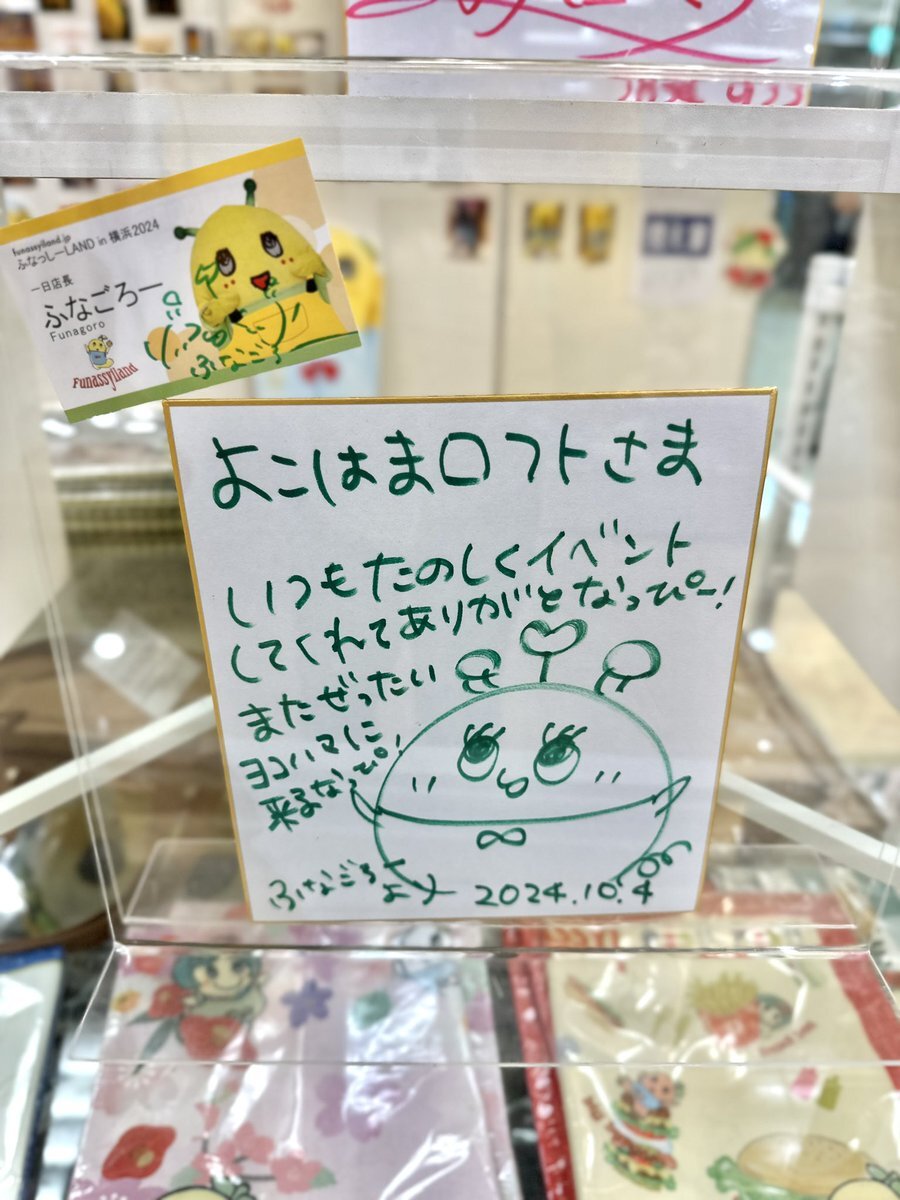 funassyiland.jp
ふなっしーLAND in 横浜2024
一日店長
ふなごろー
Funagoro
Funassyiland
ふなごろ
よこはまロフトさま
いつもたのしくイベント
してくれてありがとなっぴー!
またぜったい
ヨコハマに
来るなっぴ!
ふなごろより 2024.10.4